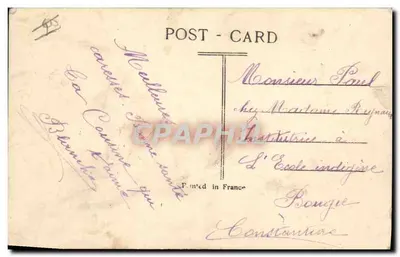 POST - CARD
Meilleures
caresses. Bonne santé
Ta Cousine qui
t'aime
Blanche
Printed in France
Monsieur Paul
chez Madame
Institutrice à
L'Ecole indigène
Bougie
Constantine
Carte-Postale